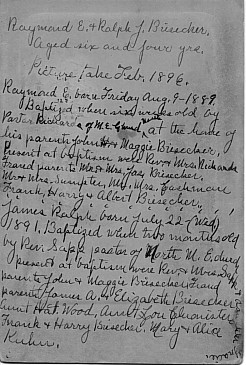 Raymond E. & Ralph J. Biesecker.
Aged six and four yrs.
Picture take Feb. 1896.
Raymond E. born Friday Aug. 9-1889.
Baptized when six weeks old by
Pastor Richards of M.E. Church at the home of
his parents John H. & Maggie Biesecker.
Present at baptism were Rev. & Mrs. Richards
Grand parents Mr. & Mrs. Jas. Biesecker.
Mr & Mrs. Sumpter, Mr. Mrs. Cashman
Frank, Harry & Albert Biesecker.
James Ralph born July 22 (Wed)
1891. Baptized when two months old
by Rev. pastor of North M. E. church
present at baptism were Rev. & Mrs.
parents John & Maggie Biesecker Grand
parents James A. & Elizabeth Biesecker
Aunt Wood, Aunt Lou
Frank & Harry Biesecker. Mary & Alice
Kuhn.